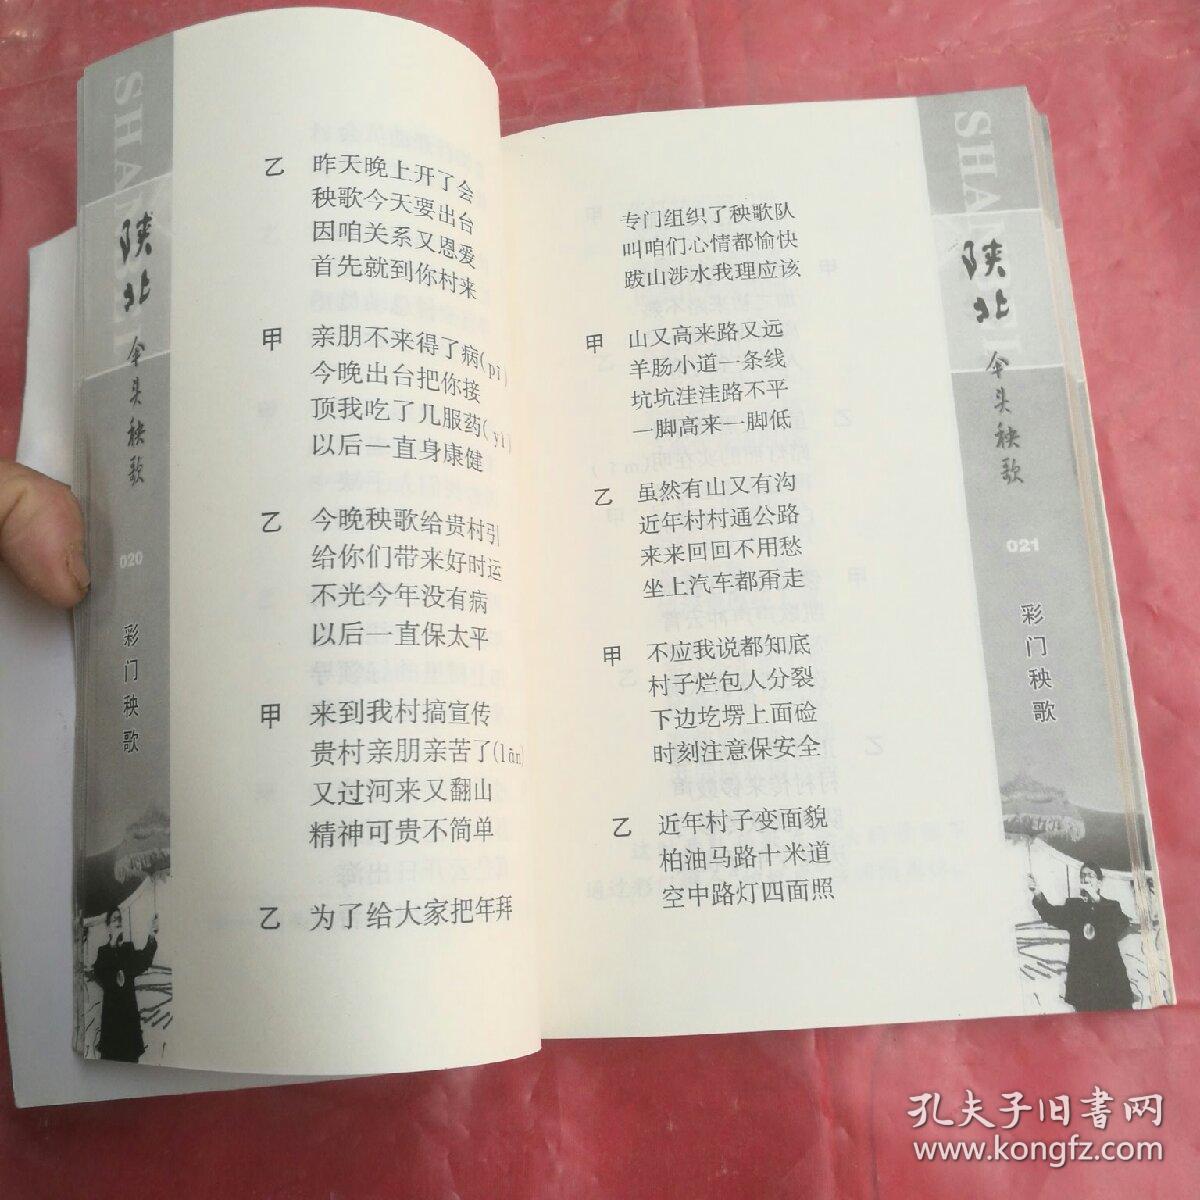 SHA
陕北
伞头秧歌
020
彩门秧歌
乙 昨天晚上开了会
秧歌今天要出台
因咱关系又恩爱
首先就到你村来
甲 亲朋不来得了病(pī)
今晚出台把你接
顶我吃了几服药(yī)
以后一直身康健
乙 今晚秧歌给贵村引
给你们带来好时运
不光今年没有病
以后一直保太平
甲 来到我村搞宣传
贵村亲朋亲苦了(lān)
又过河来又翻山
精神可贵不简单
乙 为了给大家把年拜
专门组织了秧歌队
叫咱们心情都愉快
跋山涉水我理应该
甲 山又高来路又远
羊肠小道一条线
坑坑洼洼路不平
一脚高来一脚低
乙 虽然有山又有沟
近年村村通公路
来来回回不用愁
坐上汽车都甭走
甲 不应我说都知底
村子烂包人分裂
下边圪塄上面硷
时刻注意保安全
乙 近年村子变面貌
柏油马路十米道
空中路灯四面照
SHA
陕北
伞头秧歌
021
彩门秧歌
孔夫子旧书网
www.kongfz.com